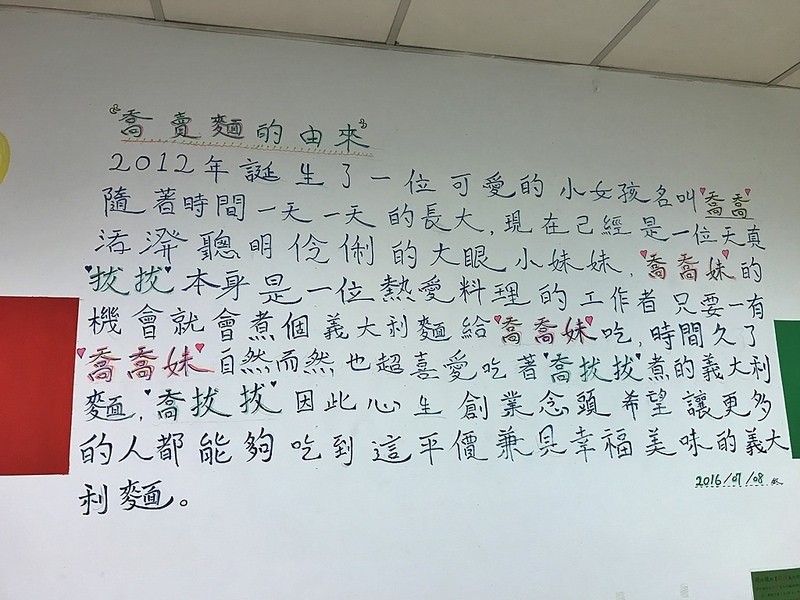 喬賣麵的由來
2012年誕生了一位可愛的小女孩名叫喬喬
隨著時間一天一天的長大,現在已經是一位天真
活潑聰明伶俐的大眼小妹妹,喬喬妹的
拔拔本身是一位熱愛料理的工作者只要一有
機會就會煮個義大利麵給喬喬妹吃,時間久了
喬喬妹自然而然也超喜愛吃著喬拔拔煮的義大利
麵,喬拔拔因此心生創業念頭希望讓更多
的人都能夠吃到這平價兼具幸福美味的義大
利麵。
2016/07/08